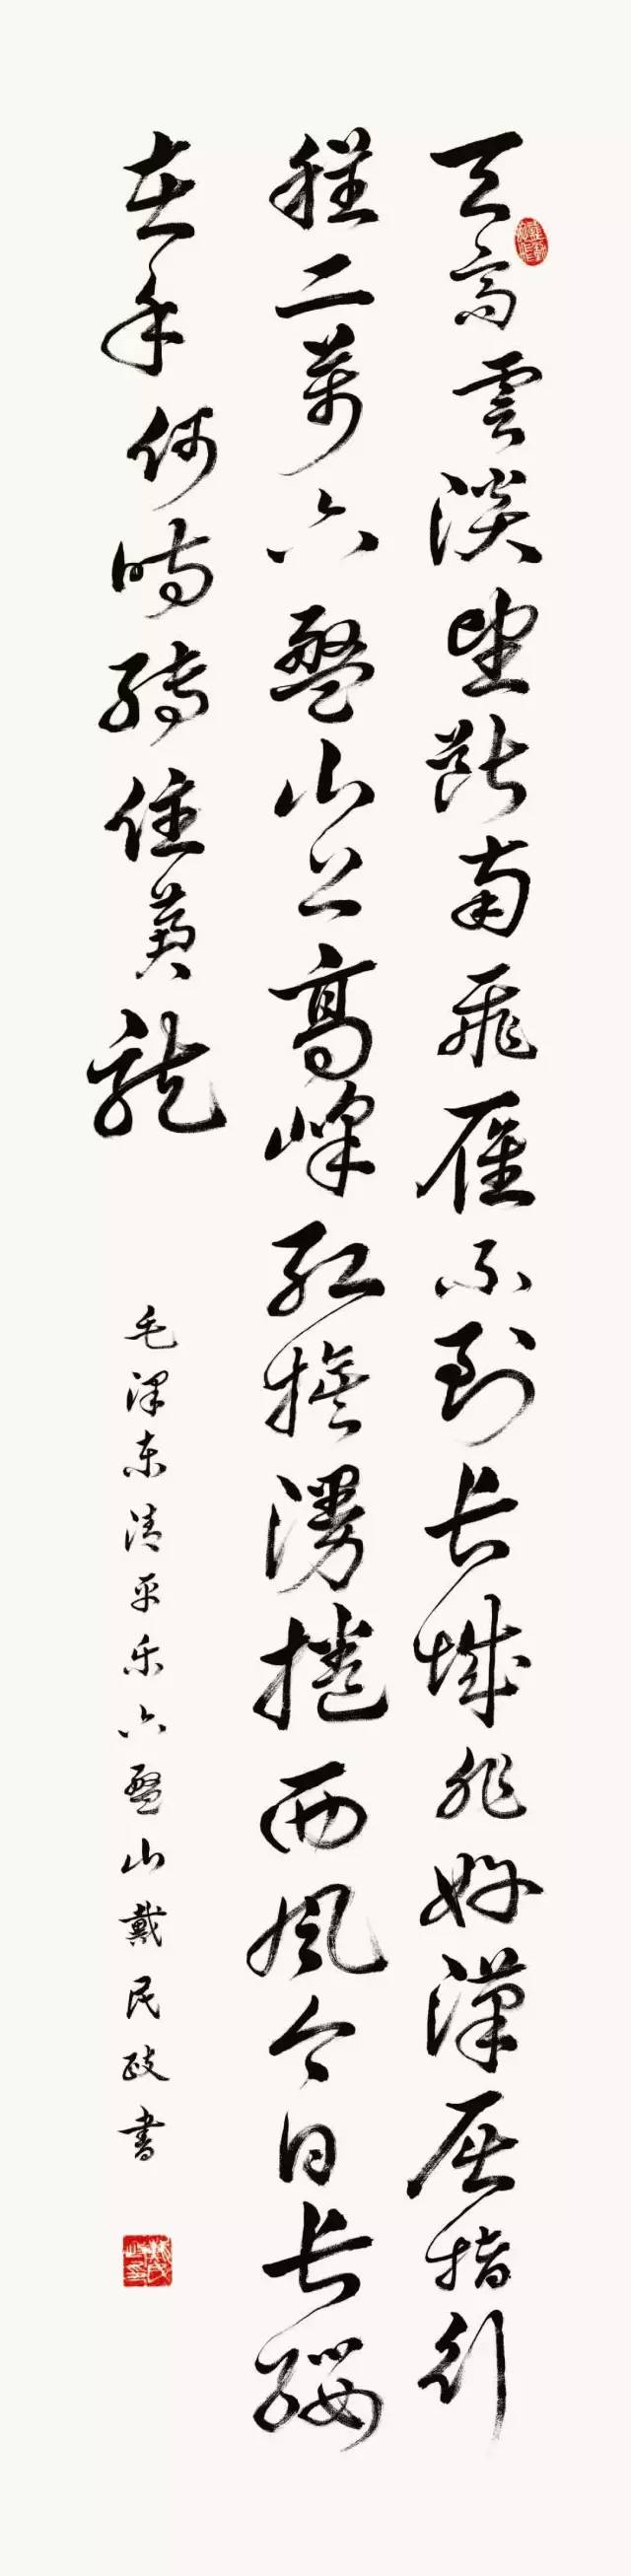 天高雲淡望斷南飛雁不到长城非好漢屈指行
程二萬六盤山上高峰红旗漫捲西風今日长纓
在手何時縛住蒼龍
毛泽东清平乐六盤山戴民政書